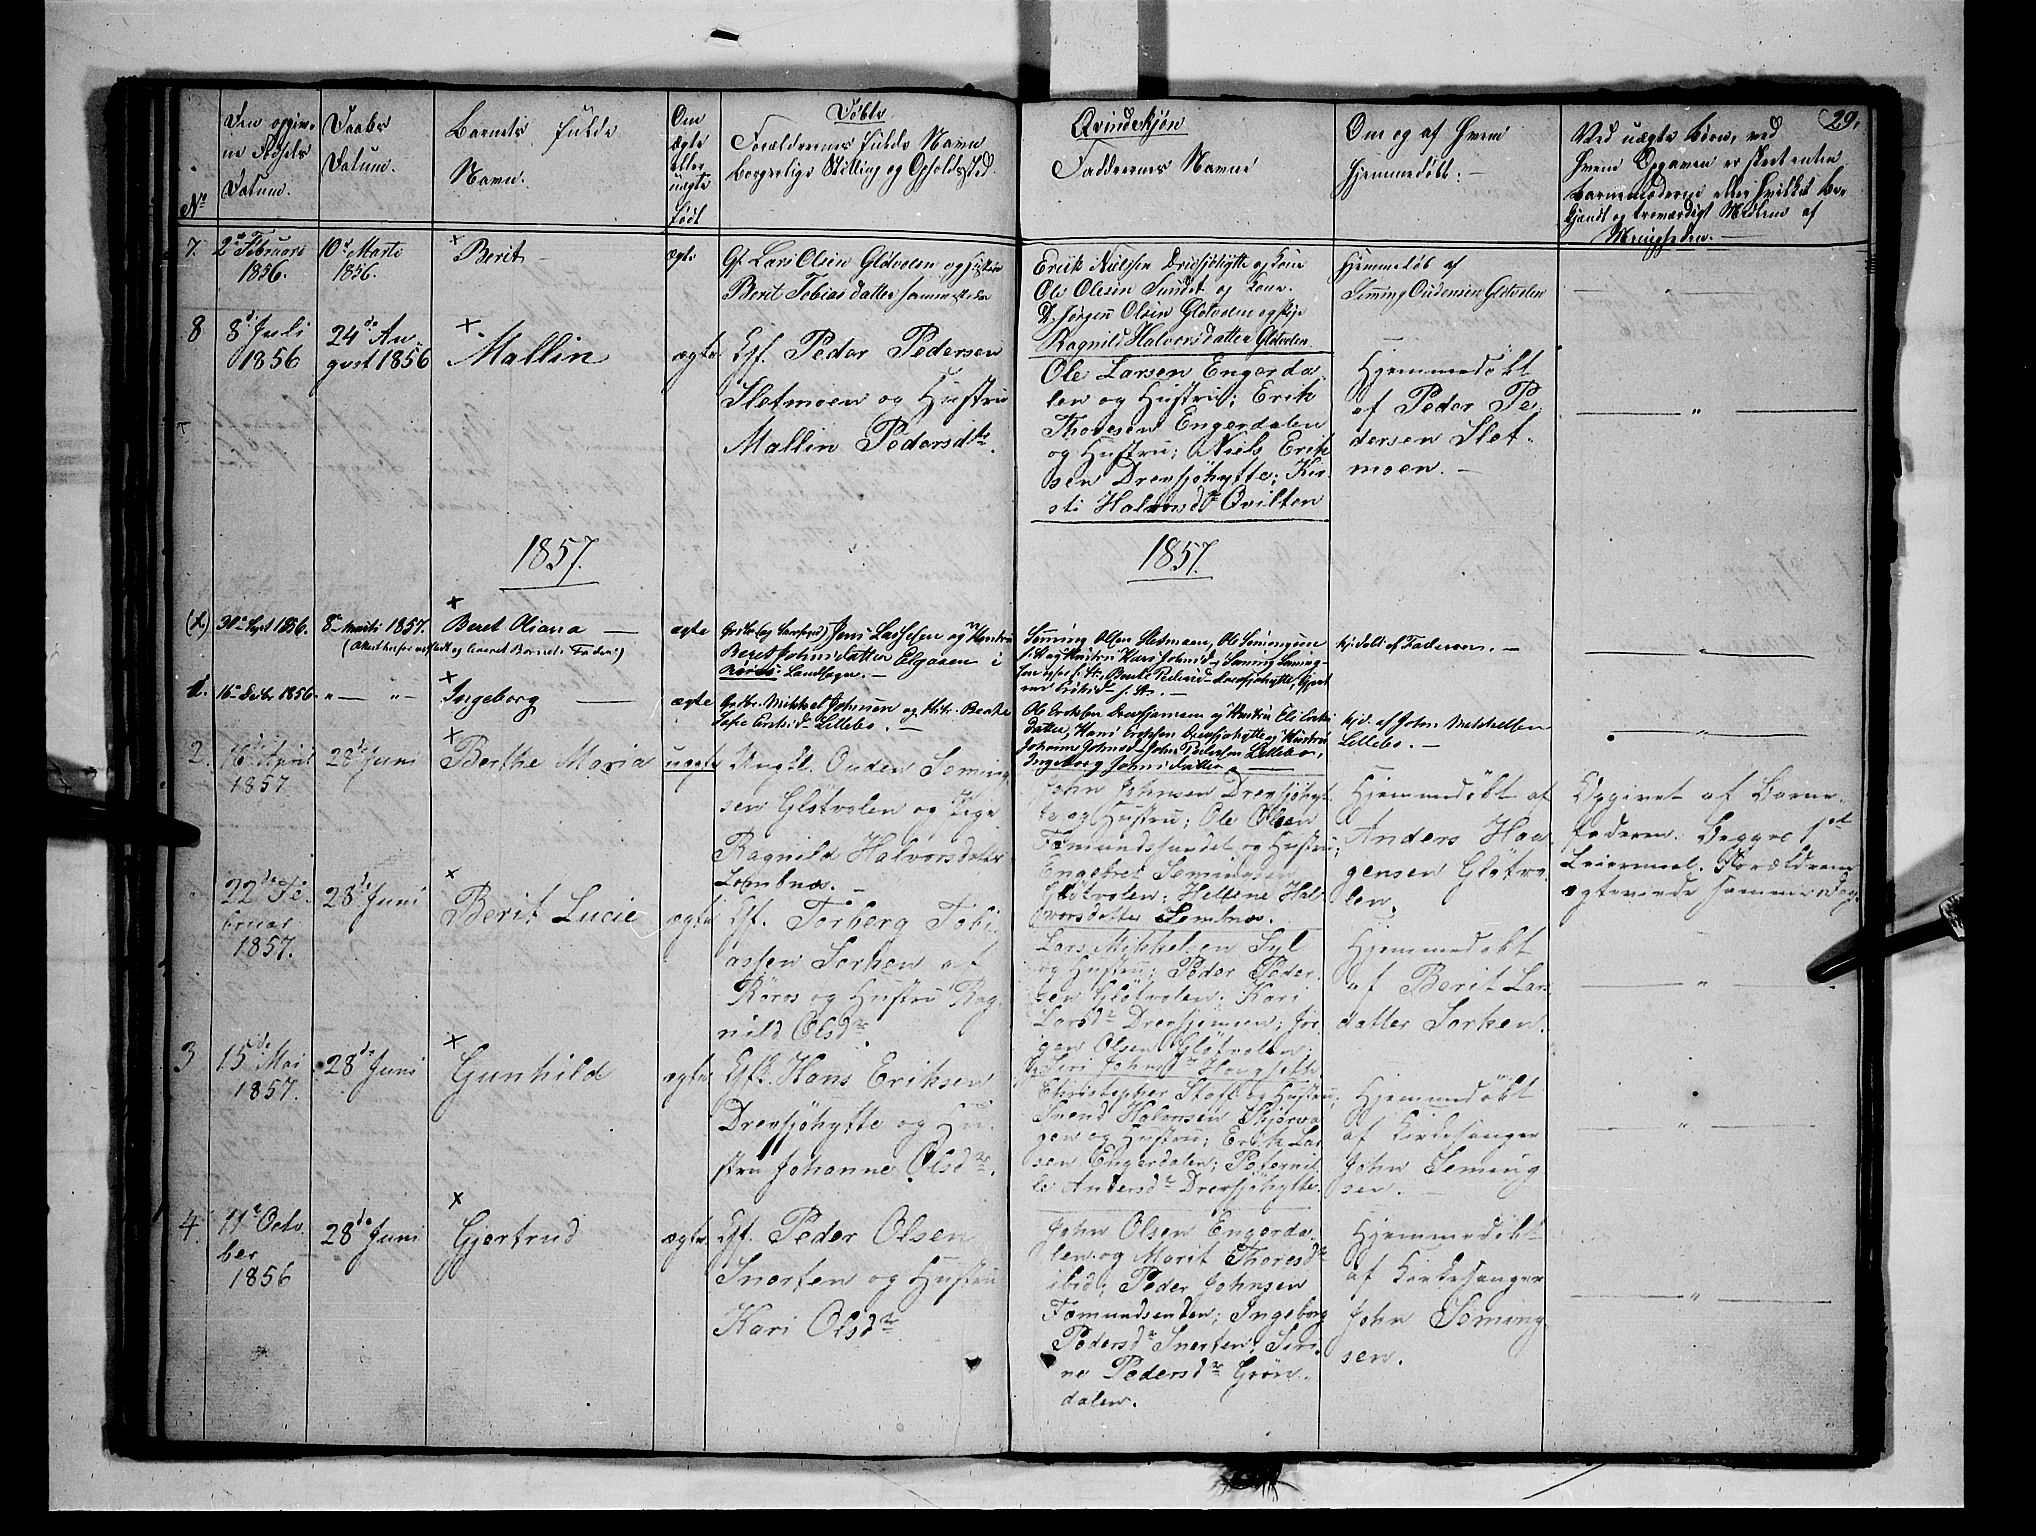 29.
Döbte
Qvindekjön
No
Den opgiv-
ne Födsels
Datum.
Daabs
Datum.
Barnets fulde
Navn.
Om
ægte
eller
uægte
född
Forældrenes fulde Navn
borgerlige Stilling og Opholdssted.
Faddernes Navne
Om og af hvem
hjemmedöbt.
Ved uægte börn, ved
hvem Opgaven er skeet enten
barnemoderen eller hvilket be-
kjendt og troværdigt Medlem af
Menigheden.
7. 2de Februari
1856.
10de Marts
1856.
Berit
ægte
Gf. Lars Olsen Glötvolen og Hustru
Berit Tobiasdatter sammesteds
Erik Nielsen Drevsjöhytte og Kone
Ole Olesen Sundet og Kone.
Jörgen Olsen Glötvolen og Pige
Ragnild Halvorsdatter Glötvolen
Hjemmedöb af
Siming Oudensen Glötvolen
8 8de Juli
1856
24de Au-
gust 1856
Mallin
ægte
Gf. Peder Pedersen
Sletmoen og Hustru
Mallin Pedersdtr.
Ole Larsen Engerda-
len og Hustru; Erik
Thoresen Engerdalen
og Hustru; Niels Erik
sen Drevsjöhytte; Kir-
sti Halvorsdtr Qvilten
Hjemmedöbt
af Peder Pe-
dersen Slet-
moen.
1857.
1857.
30te Sept 1856. 8de Marts 1857.
Beret Oliana
ægte
Jens Lassesen og Hustru
Beret Johnsdatter Elgaaen i
Röros Landsogn.
Simming Olsen Sletmoen, Ole Simingsen
Hustru Kari Johnsd. Siming Siming-
Drevsjöhytte
hjdöbt af Faderen.
1. 16de Decbr 1856. " "
Ingeborg
ægte
Mikkel Johnsen og Hstr. Beate
Sofie Eriksd. Lillebo.
Ole Eriksen Drevsjömoen og Hustru Eli Eriks-
datter, Hans Eriksen Drevsjöhytte og Hustru
Johanne Johnsd. John Pedersen Lillebo,
Ingeborg Johnsdatter
hjd. af John Mikkelsen
Lillebo.
2. 16de April
1857
28de Juni
Berthe Maria
uægte
Ungkl. Ouden Seming-
sen Glötvolen og Pige
Ragnild Halvorsdatter
Lombnæs.
John Johnsen Drevsjöhyt-
te og Hustru; Ole Olsen
Fæmundssundet og Hustru;
Engebret Semingsen
Glötvolen; Hellene Hal-
vorsdatter Lombnæs.
Hjemmedöbt af
Anders Hau-
gensen Glötvo-
len.
Opgivet af Barne-
faderen. Begges 1st
Leiermaal. Forældrene
ægteviede samme Dag
22de Fe-
bruar
1857.
28de Juni
Berit Lucie
ægte
Gf. Torberg Tobi-
assen Sorken af
Röros og Hustru Rag-
nild Olsdtr.
Lars Mikkelsen Syl
og Hustru; Peder Peder-
sen Glötvolen; Kari
Larsdtr Drevsjömoen; Jör-
gen Olsen Glötvolen;
Siri Johnsdtr Haugsette
Hjemmedöbt
af Berit Lars-
datter Sorken.
3 15de Mai
1857.
28de Juni
Gunhild
ægte
Gf. Hans Eriksen
Drevsjöhytte og Hu-
stru Johanne Olsdtr.
Christopher Stat og Hustru;
Svend Halvorsen Skjærva-
gen og Hustru; Erik Lar-
sen Engerdalen; Peternil-
le Andersdtr Drevsjöhytte.
Hjemmedöbt
af Kirkesanger
John Seming-
sen.
4. 11te Octo-
ber
1856
28de Juni
Gjertrud
ægte
Gf. Peder Olsen
Snerten og Hustru
Kari Olsdtr
John Olsen Engerda-
len og Marit Thoresdtr
ibid; Peder Johnsen
Fæmundsenden; Ingeborg
Pedersdtr Snerten; Siri-
ne Pedersdtr Grön-
dalen.
Hjemmedöbt
af Kirkesanger
John Seming-
sen.